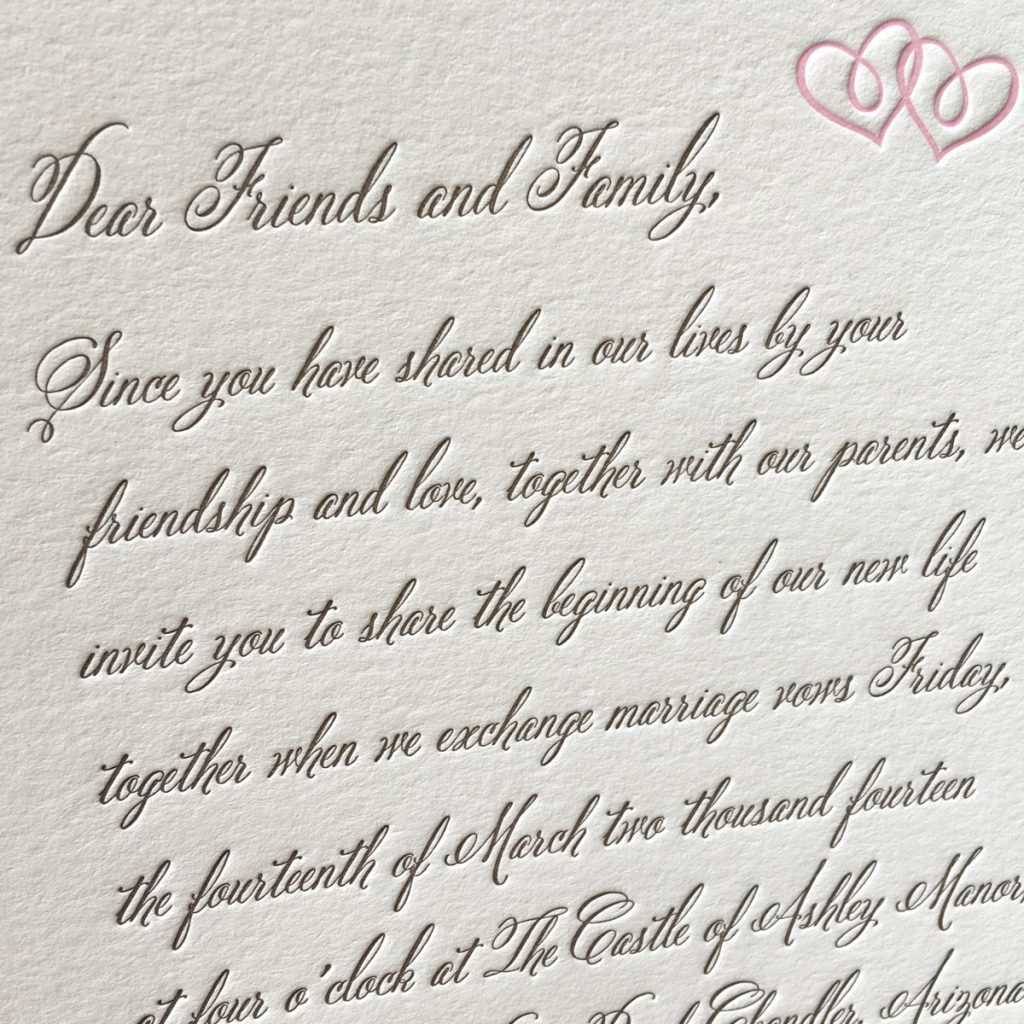 Dear Friends and Family,
Since you have shared in our lives by your
friendship and love, together with our parents, we
invite you to share the beginning of our new life
together when we exchange marriage vows Friday,
the fourteenth of March two thousand fourteen
at four o'clock at The Castle of Ashley Manor,
Chandler, Arizona